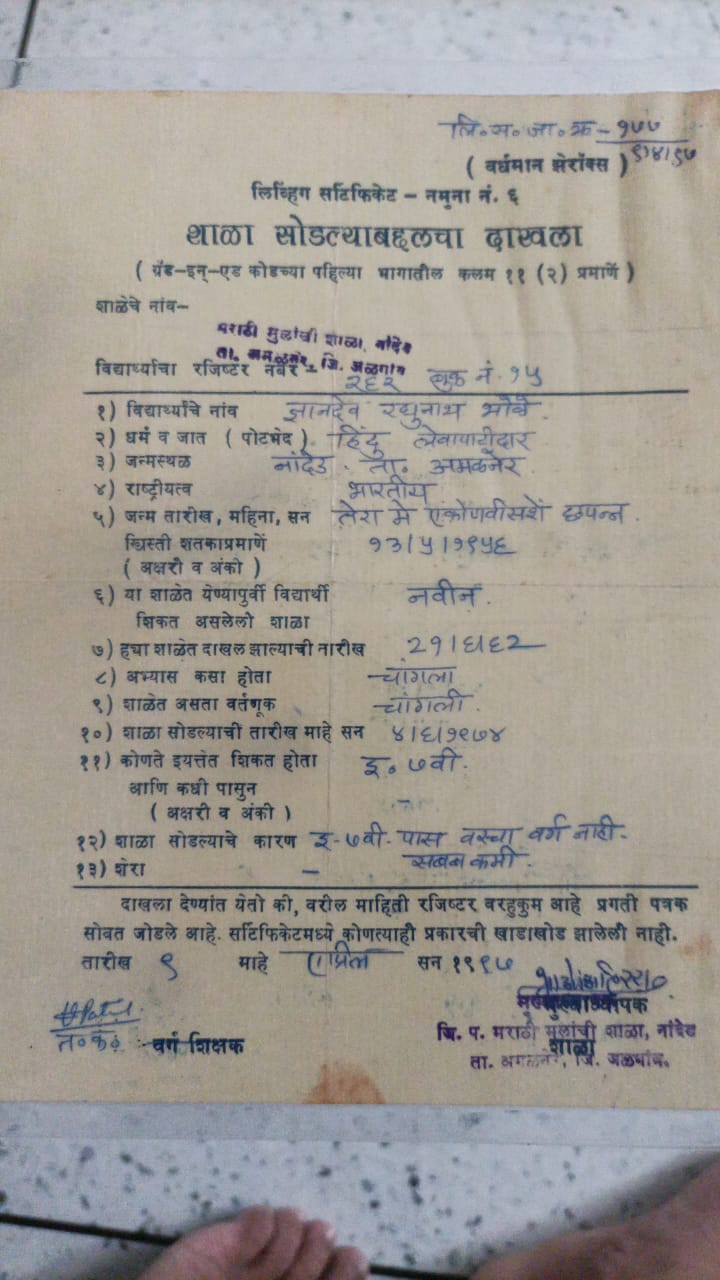 लि.स.जा.क्र-१७७
९/४/९७
( वर्धमान झेरॉक्स )
लिव्हिंग सर्टिफिकेट - नमुना नं. ६
शाळा सोडल्याबद्दलचा दाखला
( ग्रँड-इन्-एड कोडच्या पहिल्या भागातील कलम ११ (२) प्रमाणें )
शाळेचे नांव-
मराठी मुलांची शाळा, नांदेड
ता. अमळनेर, जि. जळगांव
विद्यार्थ्याचा रजिष्टर नंबर - २६२ बुक नं. १५
१) विद्यार्थ्यांचे नांव ज्ञानदेव रघुनाथ भोळे.
२) धर्म व जात ( पोटभेद ) हिंदु लेवापाटीदार
३) जन्मस्थळ नांदेड. ता. अमळनेर.
४) राष्ट्रीयत्व भारतीय
५) जन्म तारीख, महिना, सन तेरा मे एकोणवीसशें छपन्न.
ख्रिस्ती शतकाप्रमाणें १३/५/१९५६
( अक्षरी व अंको )
६) या शाळेत येण्यापुर्वी विद्यार्थी नवीन.
शिकत असलेलो शाळा
७) ह्या शाळेत दाखल झाल्याची नारीख २१/६/६२
८) अभ्यास कसा होता चांगला
९) शाळेत असता वर्तणूक चांगली.
१०) शाळा सोडल्याचीं तारीख माहे सन ४/६/१९७४
११) कोणते इयत्तेत शिकत होता इ. ७वी.
आणि कधी पासुन
( अक्षरी व अंकी ) -
१२) शाळा सोडल्याचे कारण इ-७वी. पास वरचा वर्ग नाही.
सबब कमी.
१३) शेरा -
दाखला देण्यांत येतो की, वरील माहिती रजिष्टर बरहुकुम आहे प्रगती पत्रक
सोबत जोडले आहे. सर्टिफिकेटमध्ये कोणत्याही प्रकारची खाडाखोड झालेली नाही.
तारीख ९ माहे एप्रिल सन १९९७
मुख्याध्यापक
वर्ग शिक्षक
जि. प. मराठी मुलांची शाळा, नांदेड
शाळा
ता. अमळनेर, जि. जळगांव.